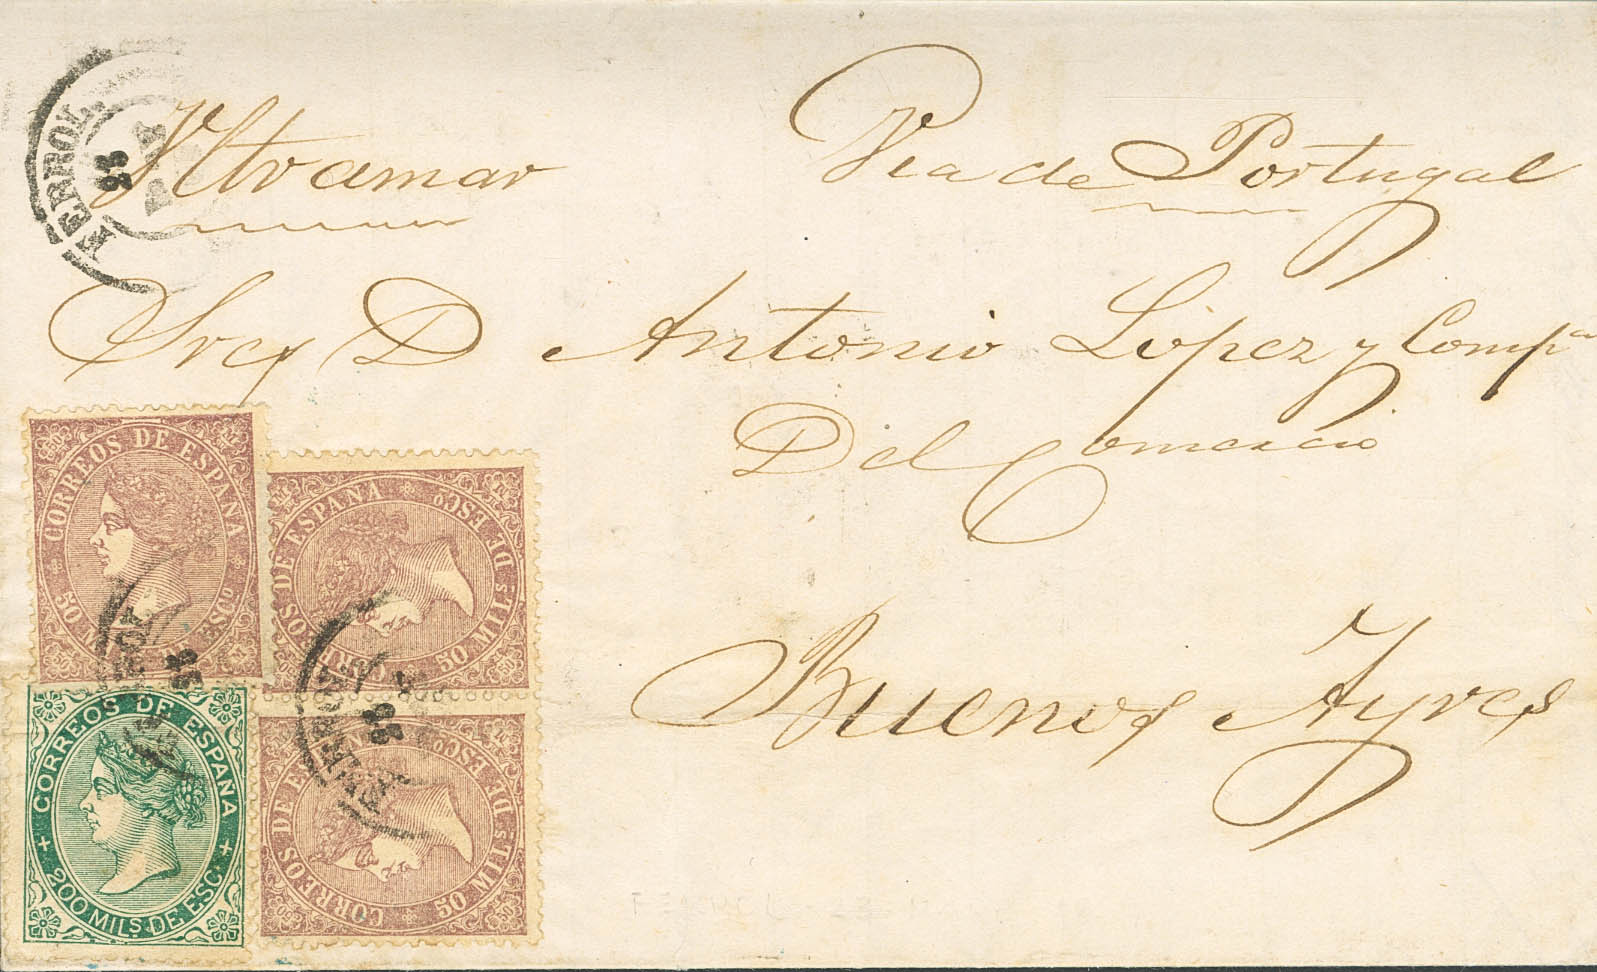 FERROL
28
Ultramar Via de Portugal
Sres D Antonio López y Compª
Del Comercio
Buenos Ayres
CORREOS DE ESPAÑA
50 MILs DE ESCO
CORREOS DE ESPAÑA
50 MILs DE ESCO
CORREOS DE ESPAÑA
50 MILs DE ESCO
CORREOS DE ESPAÑA
200 MILS. DE ESC.
FERROL
28
FERROL
28